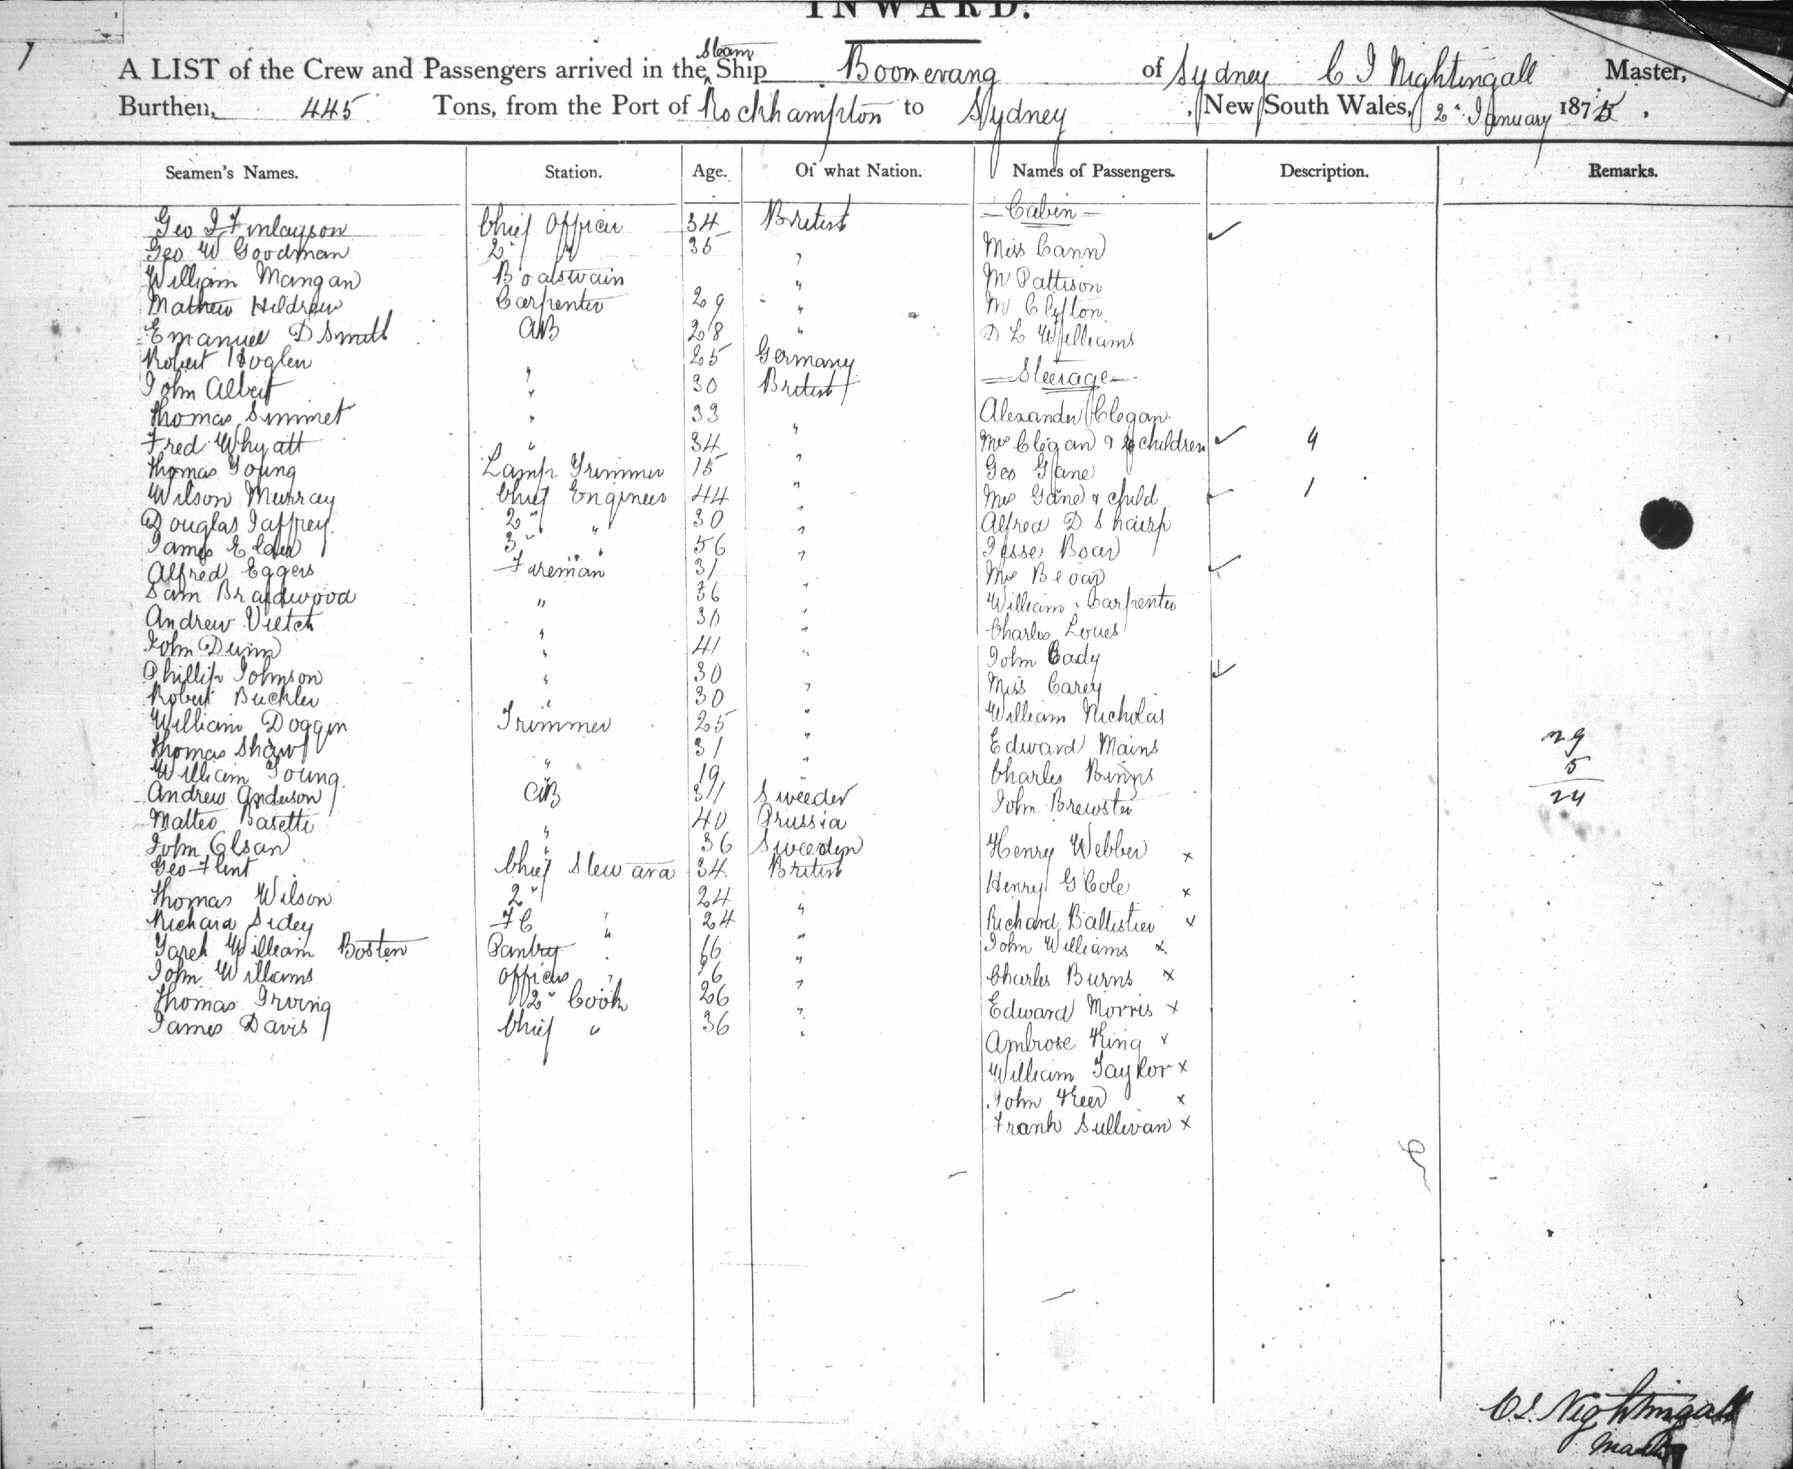 INWARD.
A LIST of the Crew and Passengers arrived in the Steam Ship Boomerang of Sydney C J Nightingall Master,
Burthen, 445 Tons, from the Port of Rockhampton to Sydney, New South Wales, 2" January 1875.
Seamen's Names. Station. Age. Of what Nation. Names of Passengers. Description. Remarks.
Geo J Finlayson Chief Officer 34 British — Cabin —
Geo W Goodman 2" " 35 " Miss Cann ✓
William Mangan Boatswain " Mr Pattison
Mathew Hildrew Carpenter 29 " Mr Clifton
Emanuel D Small AB 28 " D L Williams
Robert 25 Germany — Steerage —
John Albert " 30 British
Thomas Simmet " 33 " Alexander Clegan
Fred Whyatt " 34 " Mrs Clegan & children ✓ 4
Thomas Young Lamp Trimmer 15 " Geo Gane
Wilson Murray Chief Engineer 44 " Mrs Gane & child ✓ 1
Douglas Jaffrey 2" " 30 " Alfred D Shairp
James 3" " 56 " Jesse Boar
Alfred Eggers Fireman 31 " Mrs Boar ✓
Sam Braidwood " 36 " William Carpenter
Andrew Vietch " 30 " Charles Loues
John Dunn " 41 " John Cady
Phillip Johnson " 30 Miss Carey ✓
Robert Buckler " 30 " William Nicholas
William Doggin Trimmer 25 " Edward Mains 29
Thomas Shaw " 31 " Charles Binns 5
William Young " 19 " John Brewster 24
Andrew Anderson AB 31 Sweeden
Matteo Basetti " 40 Prussia Henry Webber x
John Olsan " 36 Sweeden
Geo Flint Chief Steward 34 British Henry G Cole x
Thomas Wilson 2" " 24 " Richard Ballistier x
Richard Sidey FC " 24 " John Williams x
William Boston Pantry " 16 " Charles Burns x
John Williams Officers " 16 " Edward Morris x
Thomas Irving 2" Cook 26 " Ambrose King x
James Davis Chief " 36 " William Taylor x
John Keer x
Frank Sullivan x
C J Nightingall
Master